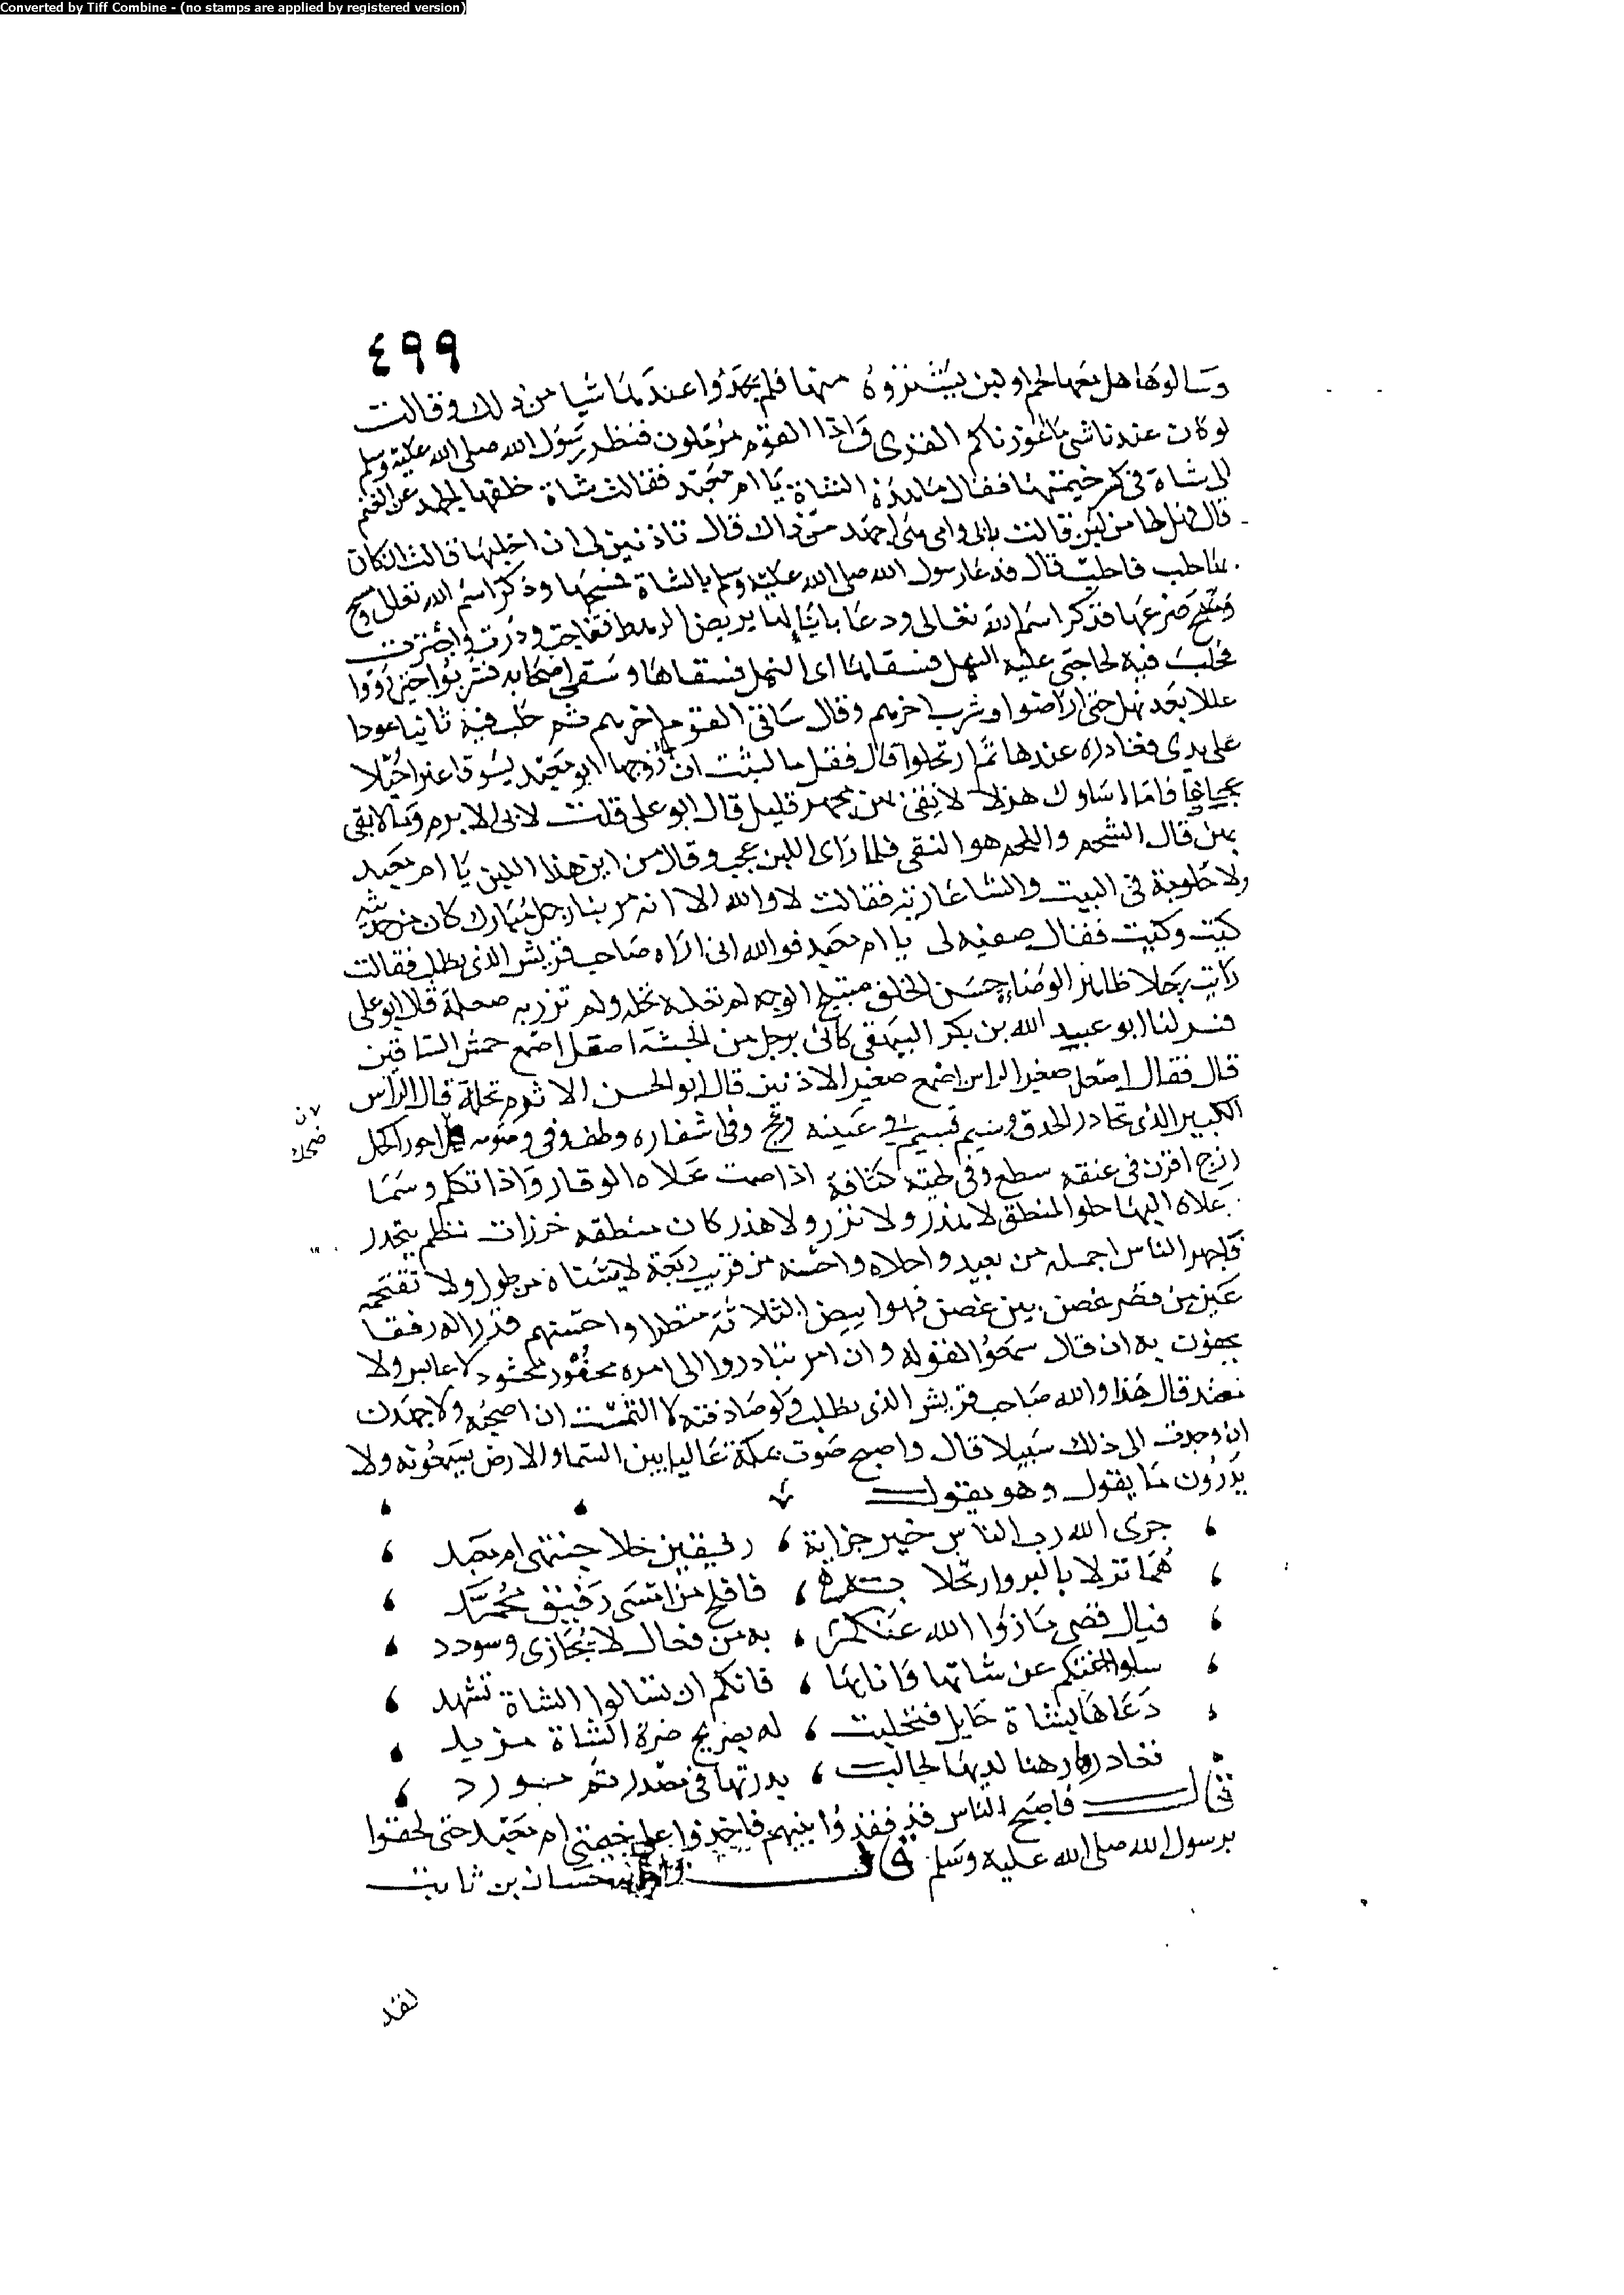 Converted by Tiff Combine - (no stamps are applied by registered version)
٤٩٩
وسالوها هل معها لحم او لبن يشتروه منها فلم يجدوا عندها شيا من ذلك وقالت
لو كان عندنا شى ما اعوزناكم القرى واذا القوم مرملون فنظر رسول الله صلى الله عليه وسلم
الى شاة فى كسر خيمتها فقال ما هذه الشاة يا ام معبد فقالت شاة خلفها الجهد عن الغنم
قال فهل لها من لبن قالت بابى وامى هى اجهد من ذاك قال تاذنين لى ان احلبها قالت ان كان
بها حلب فاحلب قال فدعا رسول الله صلى الله عليه وسلم بالشاة فمسحها وذكر اسم الله تعالى ومسح
ومسح ضرعها فذكر اسم الله تعالى ودعا باناء لها يربض الرهط فتفاجت ودرت واجترت
فحلب فيه ثجا حتى عليه فسقاها وسقى اصحابه فشربوا حتى رووا
عللا بعد نهل حتى اراضوا وشرب اخرهم وقال ساقى القوم اخرهم ثم حلب فيه ثانيا عودا
على بدى فغادره عندها ثم ارتحلوا قال فقل ما لبثت ان زوجها ابو معبد يسوق اعنزا حيلا
عجافا فاما تساوك هزلا لا نقى بهن مخهن قليل قال ابو على قلت
قال الشحم واللحم هو النقى فلما راى اللبن عجب وقال من اين هذا اللبن يا ام معبد
ولا حلوبة فى البيت والشا عازبة فقالت لا والله الا انه مر بنا رجل مبارك كان من حديثه
كيت وكيت فقال صفيه لى يا ام معبد فوالله انى اراه صاحب قريش الذى يطلب فقالت
رايت رجلا ظاهر الوضاء حسن الخلق مبتلج الوجه لم تعله نحله ولم تزر به صعلة قال ابو على
فسر لنا ابو عبيد الله بن بكر البيهقى كانى برجل من الحبشة اصعل اصمع حمش الساقين
قال فقال اصعل صغير الراس اصمع صغير الاذنين قال ابو الحسن الاثرم ثجلة قال الراس
الكبير الذى وسيم قسيم فى عينيه دعج وفى اشفاره وطف وفى صوته احور اكحل
ازج اقرن فى عنقه سطع وفى لحيته كثافة اذا صمت علاه الوقار واذا تكلم وسما
علاه البها حلو المنطق لا هذر ولا نزر ولا هذر كان منطقه خرزات نظم يتحدر
فابهر الناس اجمله من بعيد واحلاه واحسنه من قريب ربعة لا يشناه من طول ولا تقتحمه
عين من قصر غصن بين غصن فهو الثلاثة منظرا واحسنهم قدرا له رفقا
يحفون به ان قال سمعوا لقوله وان امر تبادروا الى امره محفود محشود لا عابس ولا
قال هذا والله صاحب قريش الذى يطلب ولو صادفته لالتمست ان اصحبه ولاجهدن
ان وجدت الى ذلك سبيلا قال واصبح صوت بمكة عاليا بين السما والارض يسمعونه ولا
يدرون ما يقول وهو يقول
جزى الله رب الناس خير جزاية ، رفيقين حلا خيمتى ام معبد
هما نزلا بالبر وارتحلا ، فافلح من امسى رفيق محمد
فيال قصى ما زوا الله عنكم ، به من فعال لا تجازى وسودد
سلوا اختكم عن شاتها واناها ، فانكم ان تسالوا الشاة تشهد
دعاها بشاة حايل فتحلبت ، له بصريح ضرة الشاة مزبد
فغادره رهنا لديها لحالب ، بدرتها فى مصدر ثم مورد
قال فاصبح الناس قد فقدوا نبيهم فاخذوا على خيمتى ام معبد حتى لحقوا
برسول الله صلى الله عليه وسلم قال حسان بن ثابت
لقد